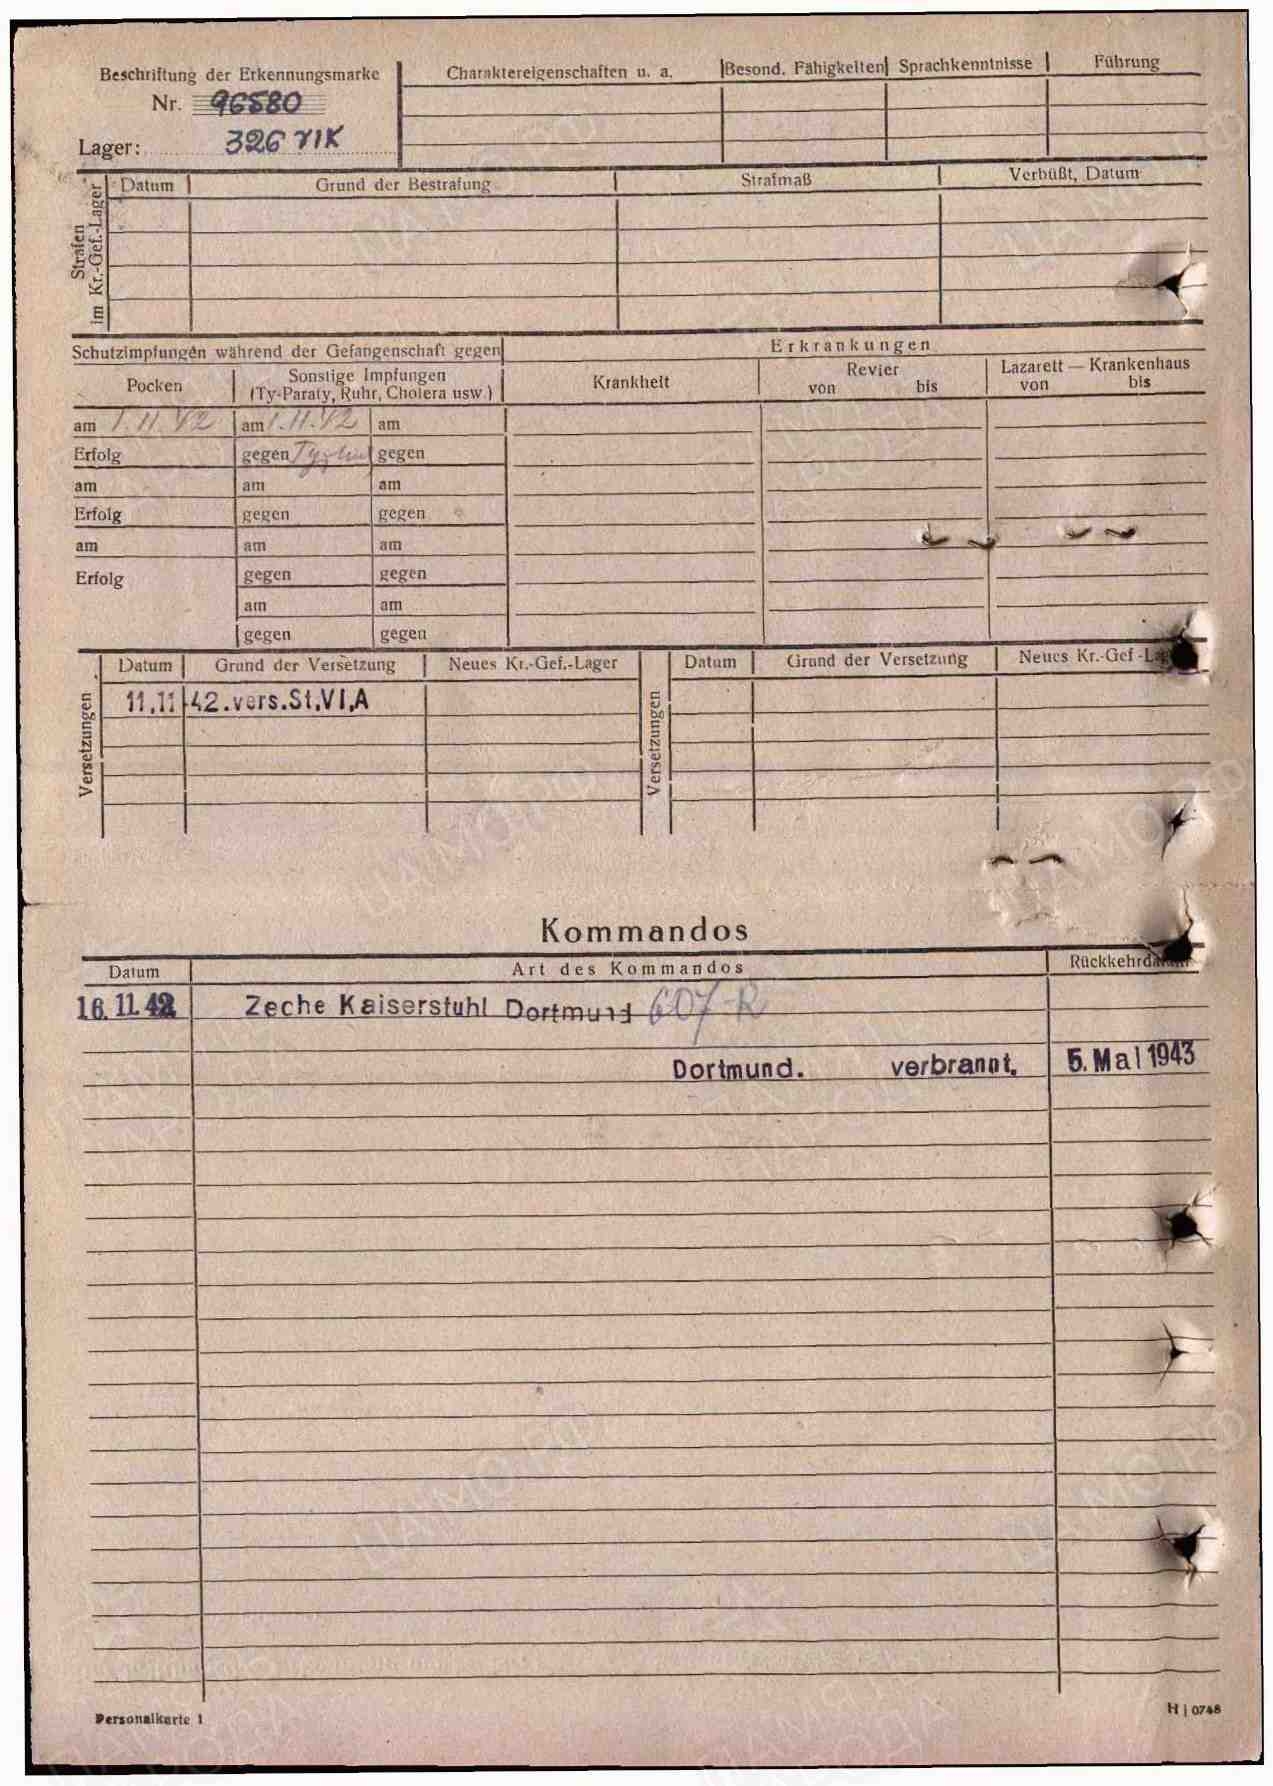 Beschriftung der Erkennungsmarke
Nr. 96580
Lager: 326 VIK
Charaktereigenschaften u. a. Besond. Fähigkeiten Sprachkenntnisse Führung
Strafen
im Kr.-Gef.-Lager
Datum Grund der Bestrafung Strafmaß Verbüßt, Datum
Schutzimpfungen während der Gefangenschaft gegen Erkrankungen
Pocken Sonstige Impfungen
(Ty-Paraty, Ruhr, Cholera usw.)
Krankheit Revier
von bis
Lazarett — Krankenhaus
von bis
am 1.11.42 am 1.11.42 am
Erfolg gegen gegen
am am am
Erfolg gegen gegen
am am am
Erfolg gegen gegen
am am
gegen gegen
Versetzungen
Datum Grund der Versetzung Neues Kr.-Gef.-Lager
11.11.42.vers.St.VI,A
Versetzungen
Datum Grund der Versetzung Neues Kr.-Gef-Lag
Kommandos
Datum Art des Kommandos Rückkehrdatum
16.11.42 Zeche Kaiserstuhl Dortmund 607-R
Dortmund. verbrannt. 5. Mai 1943
Personalkarte 1 H | 0748